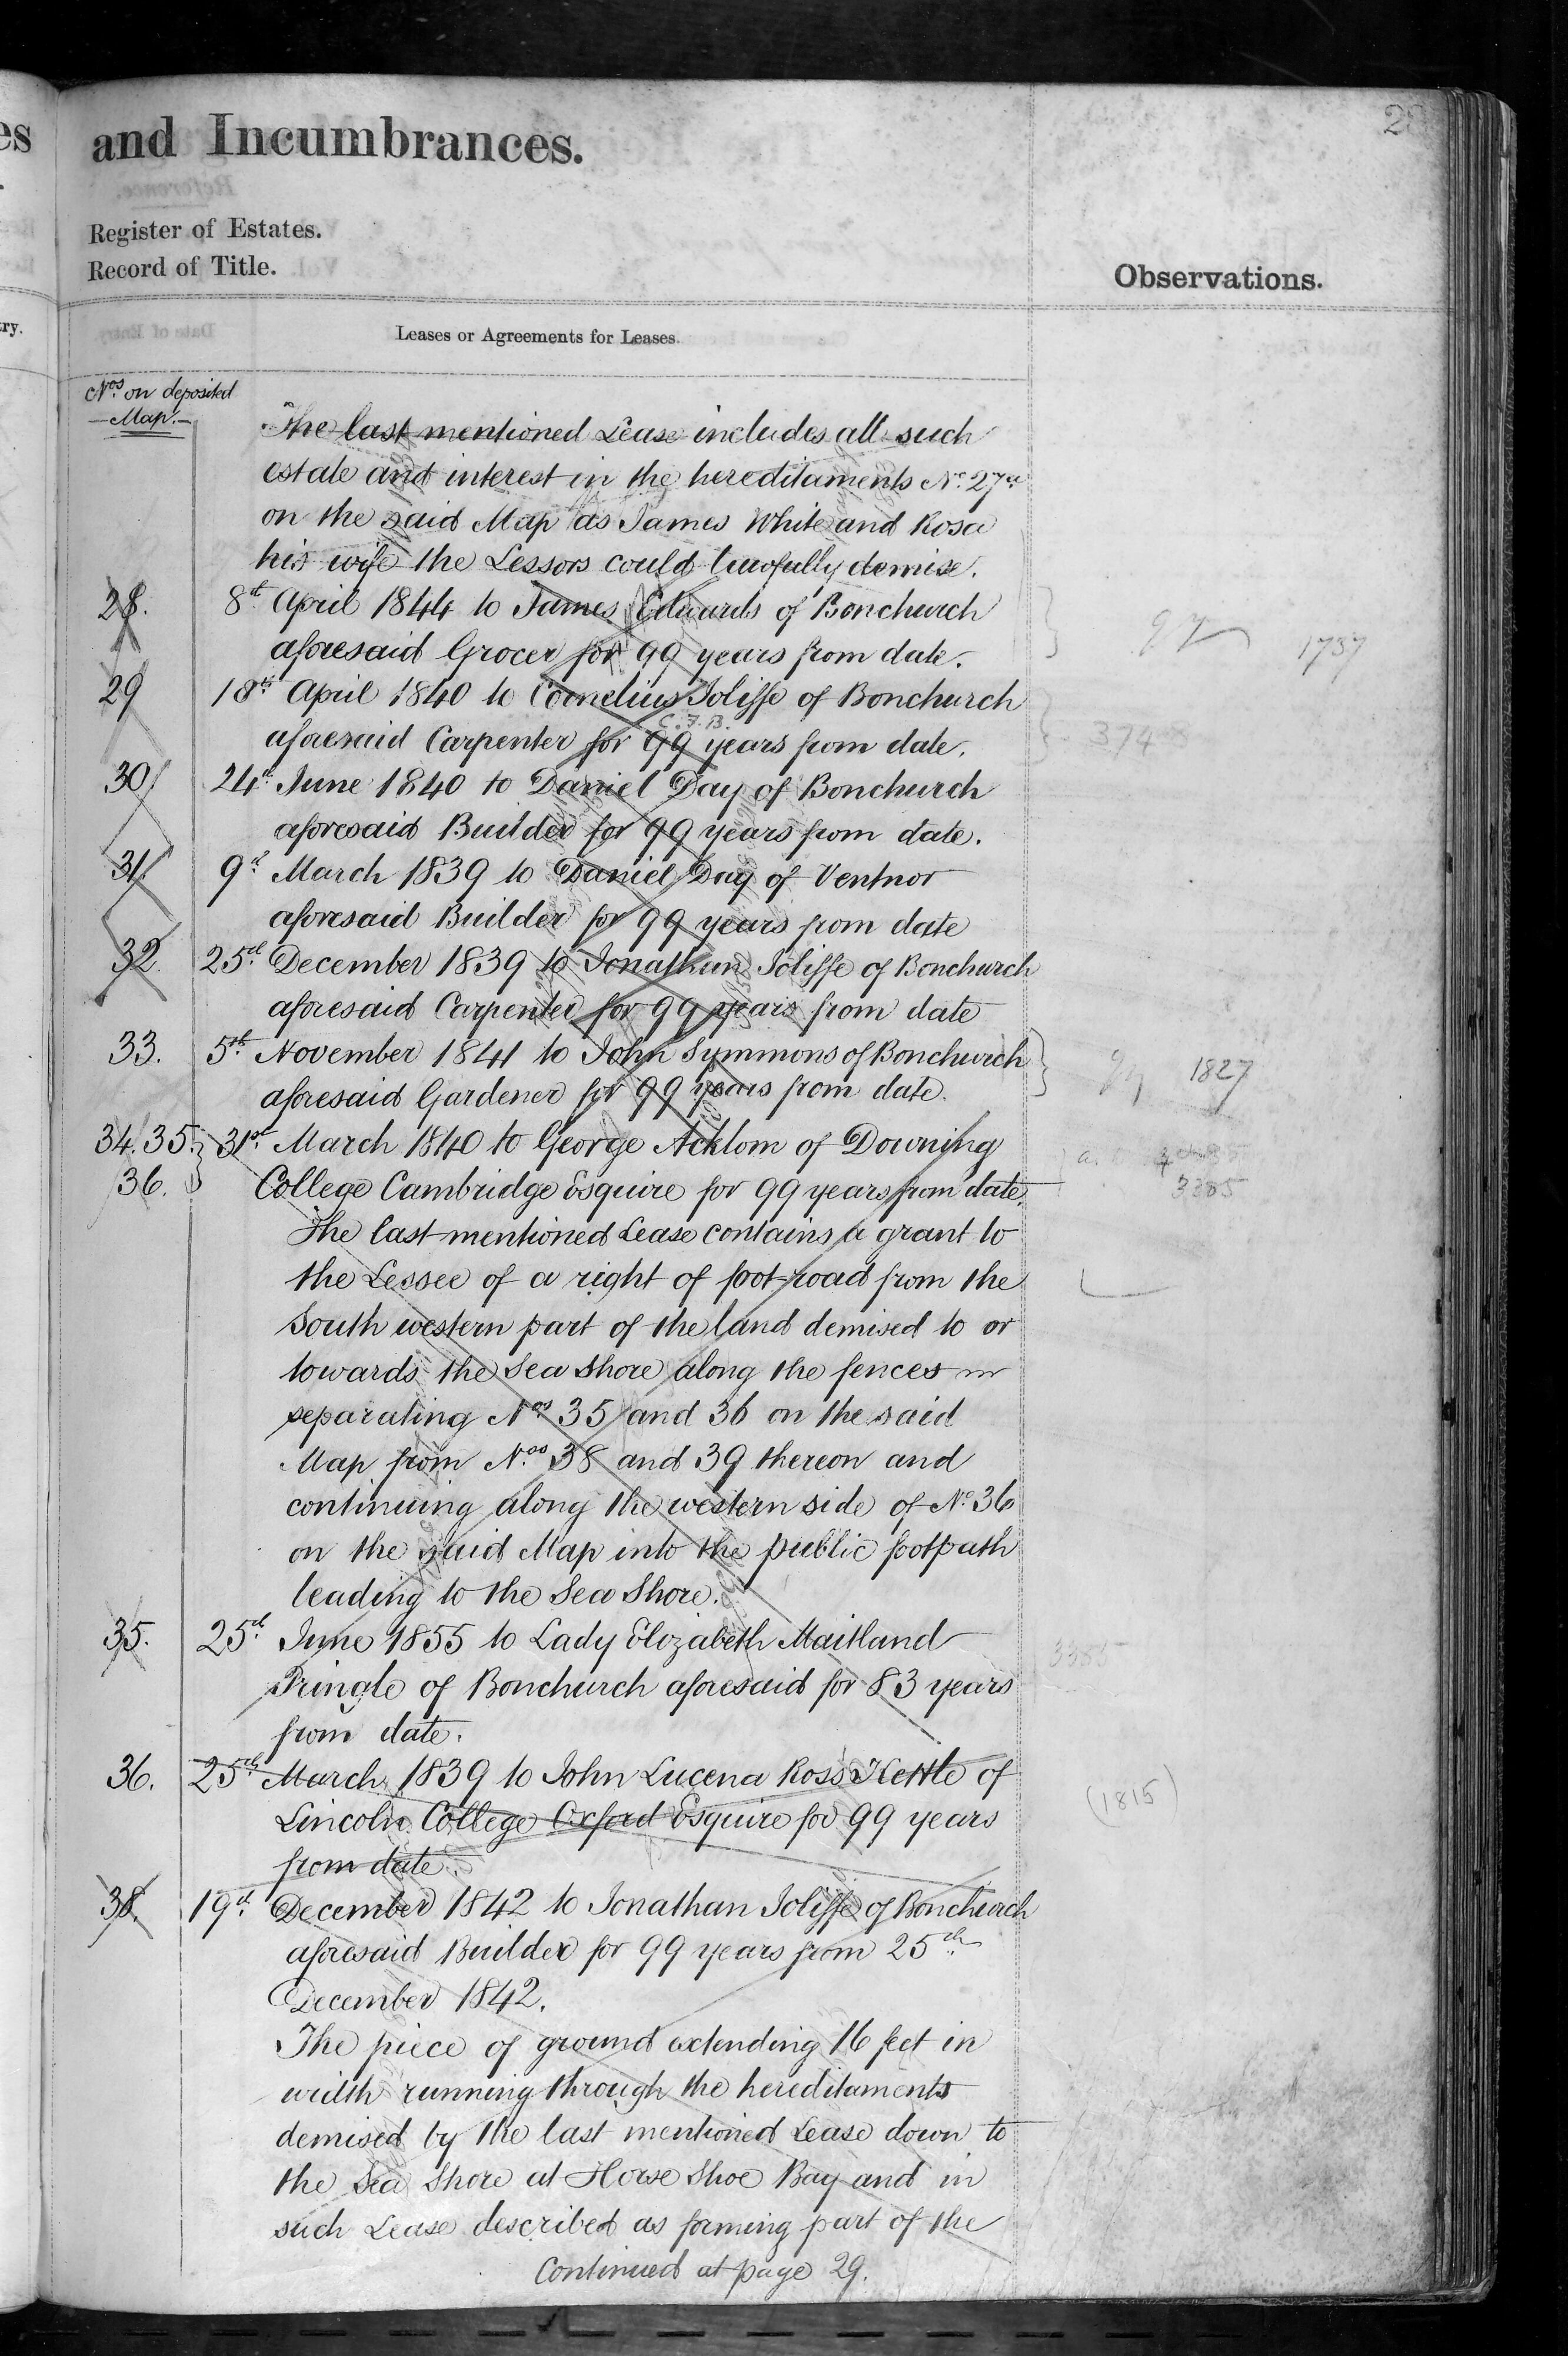 and Incumbrances.
Register of Estates.
Record of Title.
Observations.
Leases or Agreements for Leases.
Nos. on deposited
Map.
The last mentioned Lease includes all such
estate and interest in the hereditaments No. 27a
on the said Map as James White and Rosa
his wife the Lessors could lawfully demise.
28. 8th April 1844 to James Edwards of Bonchurch
aforesaid Grocer for 99 years from date.
1737
29 18th April 1840 to Cornelius Joliffe of Bonchurch
C.J.B.
aforesaid Carpenter for 99 years from date.
374
30 24th June 1840 to Daniel Day of Bonchurch
aforesaid Builder for 99 years from date.
31. 9th March 1839 to Daniel Day of Ventnor
aforesaid Builder for 99 years from date
32. 25th December 1839 to Jonathan Joliffe of Bonchurch
aforesaid Carpenter for 99 years from date
33. 5th November 1841 to John Symmons of Bonchurch
1827
aforesaid Gardener for 99 years from date.
34.35. 31st March 1840 to George Acklom of Downing
36. College Cambridge Esquire for 99 years from date.
3385
The last mentioned Lease contains a grant to
the Lessee of a right of foot-road from the
South western part of the land demised to or
towards the Sea Shore along the fences
separating Nos. 35 and 36 on the said
Map from Nos. 38 and 39 thereon and
continuing along the western side of No. 36
on the said Map into the public footpath
leading to the Sea Shore.
35. 25th June 1855 to Lady Elizabeth Maitland
3385
Pringle of Bonchurch aforesaid for 83 years
from date.
36. 25th March 1839 to John Lucena Ross Kettle of
(1815)
Lincoln College Oxford Esquire for 99 years
from date.
38. 19th December 1842 to Jonathan Joliffe of Bonchurch
aforesaid Builder for 99 years from 25th
December 1842.
The piece of ground extending 16 feet in
width running through the hereditaments
demised by the last mentioned Lease down to
the Sea Shore at Horse Shoe Bay and in
such Lease described as forming part of the
Continued at page 29.